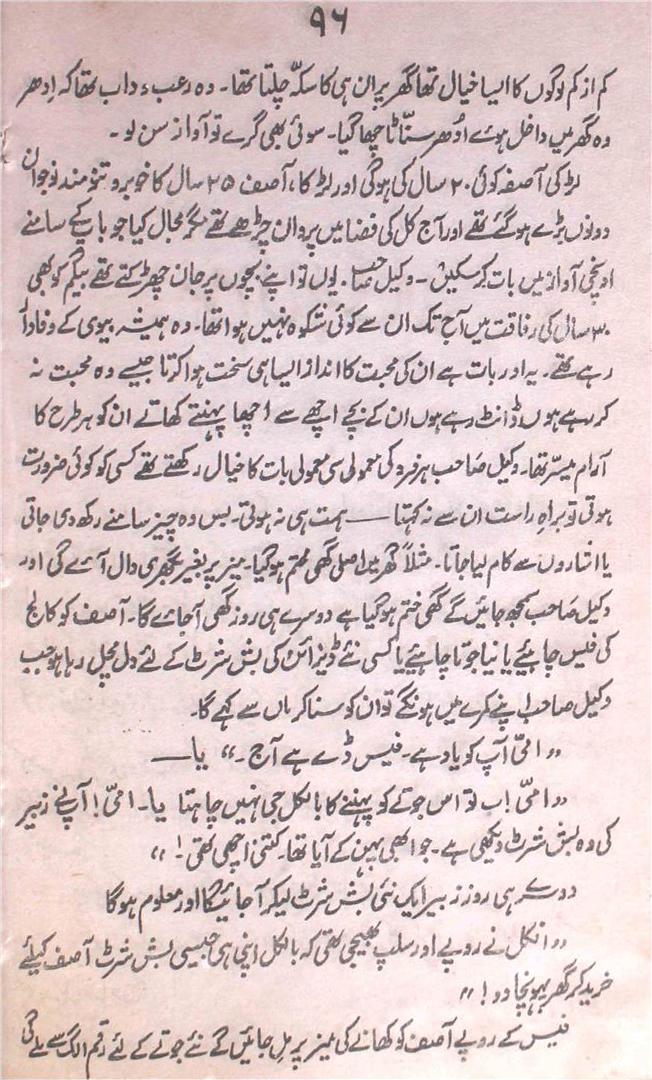 ۹۶
کم از کم لوگوں کا ایسا خیال تھا گھر پر ان ہی کا سکہ چلتا تھا۔ وہ رعب و داب تھا کہ اِدھر
وہ گھر میں داخل ہوئے اُدھر سنّاٹا چھا گیا۔ سوئی بھی گرے تو آواز سن لو۔
لڑکی آصفہ کوئی ۲۰ سال کی ہوگی اور لڑکا، آصف ۲۵ سال کا خوبرو تنومند نوجوان
دونوں بڑے ہو گئے تھے اور آج کل کی فضا میں پروان چڑھے تھے مگر مجال کیا جو باپ کے سامنے
اونچی آواز میں بات کر سکیں۔ وکیل صاحب۔ یوں تو اپنے بچوں پر جان چھڑکتے تھے بیگم کو بھی
۳۰ سال کی رفاقت میں آج تک ان سے کوئی شکوہ نہیں ہوا تھا۔ وہ ہمیشہ بیوی کے وفادار
رہے تھے۔ یہ اور بات ہے ان کی محبت کا انداز ایسا ہی سخت ہوا کرتا جیسے وہ محبت نہ
کر رہے ہوں ڈانٹ رہے ہوں ان کے بچے اچھے سے اچھا پہنتے کھاتے ان کو ہر طرح کا
آرام میسّر تھا۔ وکیل صاحب ہر فرد کی معمولی سی معمولی بات کا خیال رکھتے تھے کسی کو کوئی ضرورت
ہوتی تو براہِ راست ان سے نہ کہتا — ہمت ہی نہ ہوتی۔ بس وہ چیز سامنے رکھ دی جاتی
یا اشاروں سے کام لیا جاتا۔ مثلاً گھر میں اصلی گھی ختم ہو گیا۔ میز پر بغیر بگھری دال آئے گی اور
وکیل صاحب سمجھ جائیں گے گھی ختم ہو گیا ہے دوسرے ہی روز گھی آ جائے گا۔ آصف کو کالج
کی فیس چاہیئے یا نیا جوتا چاہیئے یا کسی نئے ڈیزائن کی بش شرٹ کے لئے دل مچل رہا ہو جب
وکیل صاحب اپنے کمرے میں ہونگے تو ان کو سنا کر ماں سے کہے گا۔
"امّی آپ کو یاد ہے۔ فیس ڈے ہے آج۔" یا—
"امّی! اب تو اس جوتے کو پہننے کا بالکل جی نہیں چاہتا یا۔ امّی! آپ نے زبیر
کی وہ بش شرٹ دیکھی ہے۔ جو ابھی پہن کے آیا تھا۔ کتنی اچھی تھی!"
دوسرے ہی روز زبیر ایک نئی بش شرٹ لیکر آ جائیگا اور معلوم ہوگا
"انکل نے روپے اور سلپ بھیجی تھی کہ بالکل اپنی ہی جیسی بش شرٹ آصف کیلئے
خرید کر گھر پہونچا دو!"
فیس کے روپے آصف کو کھانے کی میز پر مل جائیں گے نئے جوتے کے لئے رقم الگ سے ملے گی